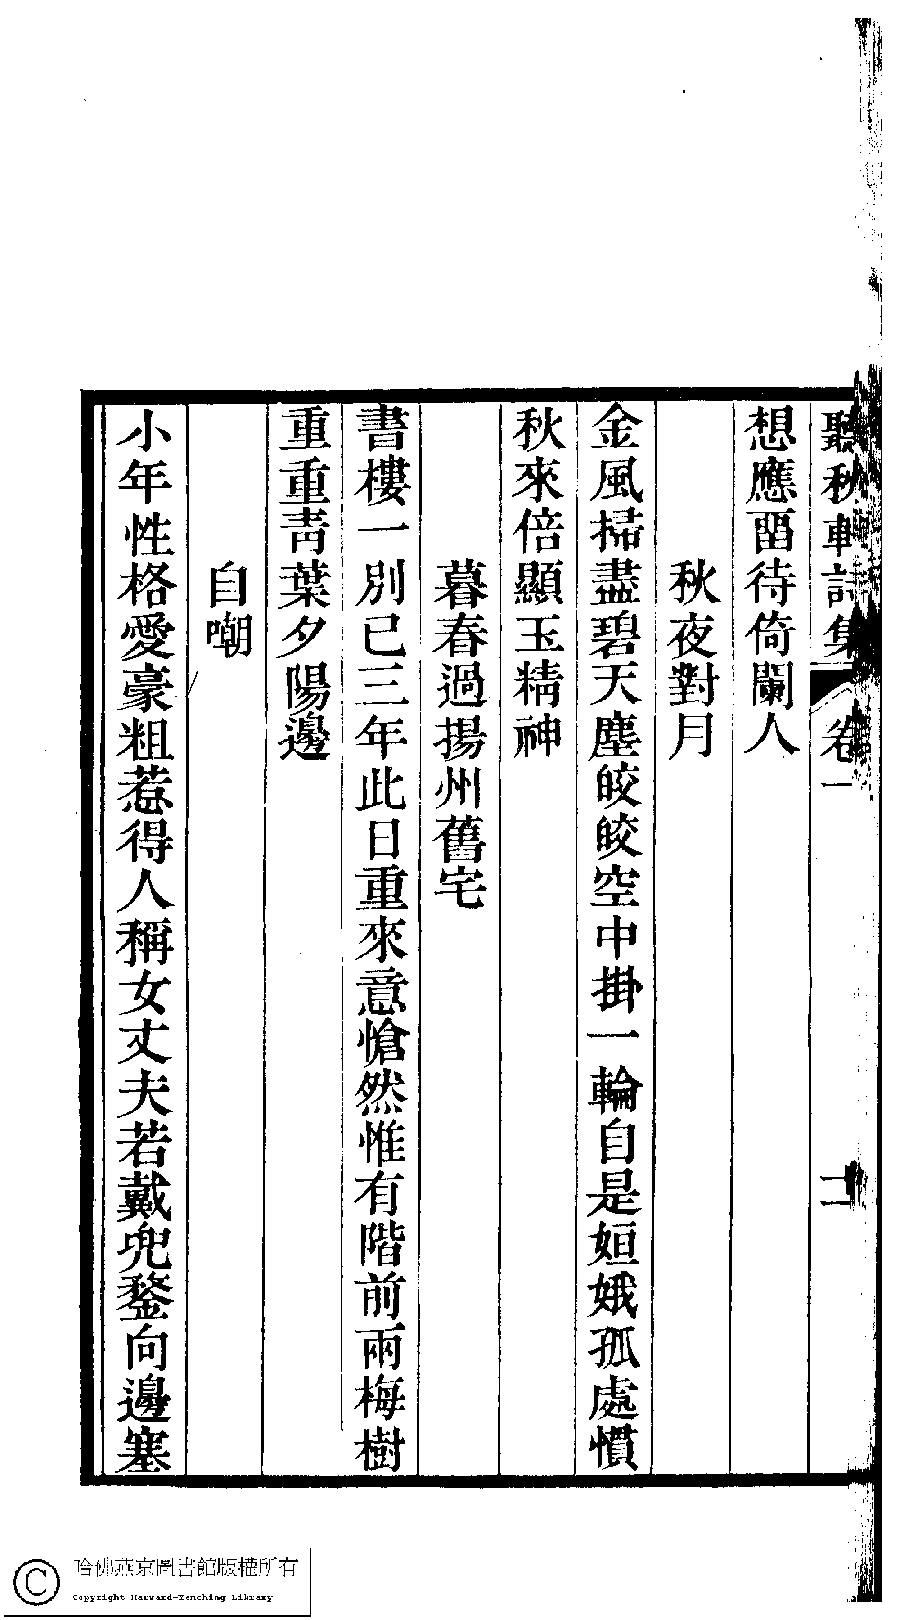 聽秋軒詩集 卷一 二
想應畱待倚闌人
秋夜對月
金風掃盡碧天塵皎皎空中掛一輪自是姮娥孤處慣
秋來倍顯玉精神
暮春過揚州舊宅
書樓一別已三年此日重來意愴然惟有階前兩梅樹
重重靑葉夕陽邊
自嘲
小年性格愛豪粗惹得人稱女丈夫若戴兜鍪向邊塞
哈佛燕京圖書館版權所有
Copyright Harvard-Yenching Library